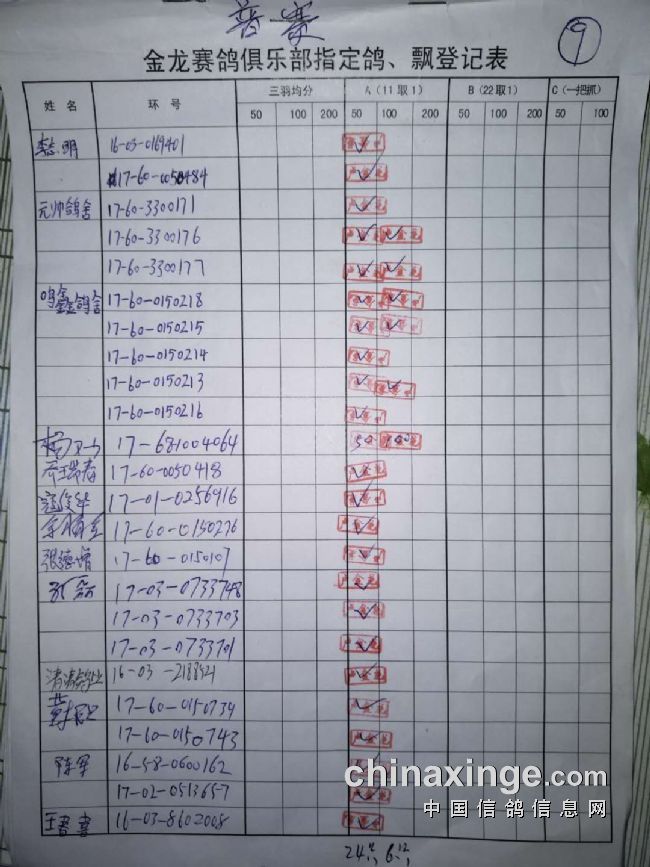 普赛
⑨
金龙赛鸽俱乐部指定鸽、飘登记表
姓名 环号 三羽均分 A（11取1） B（22取1） C（一把抓）
50 100 200 50 100 200 50 100 200 50 100
李志明 16-03-0169401
17-60-0050484
元帅鸽舍 17-60-3300171
17-60-3300176
17-60-3300177
鸣鑫鸽舍 17-60-0150218
17-60-0150215
17-60-0150214
17-60-0150213
17-60-0150216
17-681004064 50 100
齐瑞春 17-60-0050418
寇俊华 17-01-0256916
17-60-0150276
张德增 17-60-0150107
17-03-0733748
17-03-0733703
17-03-0733701
清涛鸽业 16-03-2188521
17-60-0150739
17-60-0150743
陈军 16-58-0600162
17-02-0513657
王春喜 16-03-8602008
24 6
chinaxinge.com
中国信鸽信息网